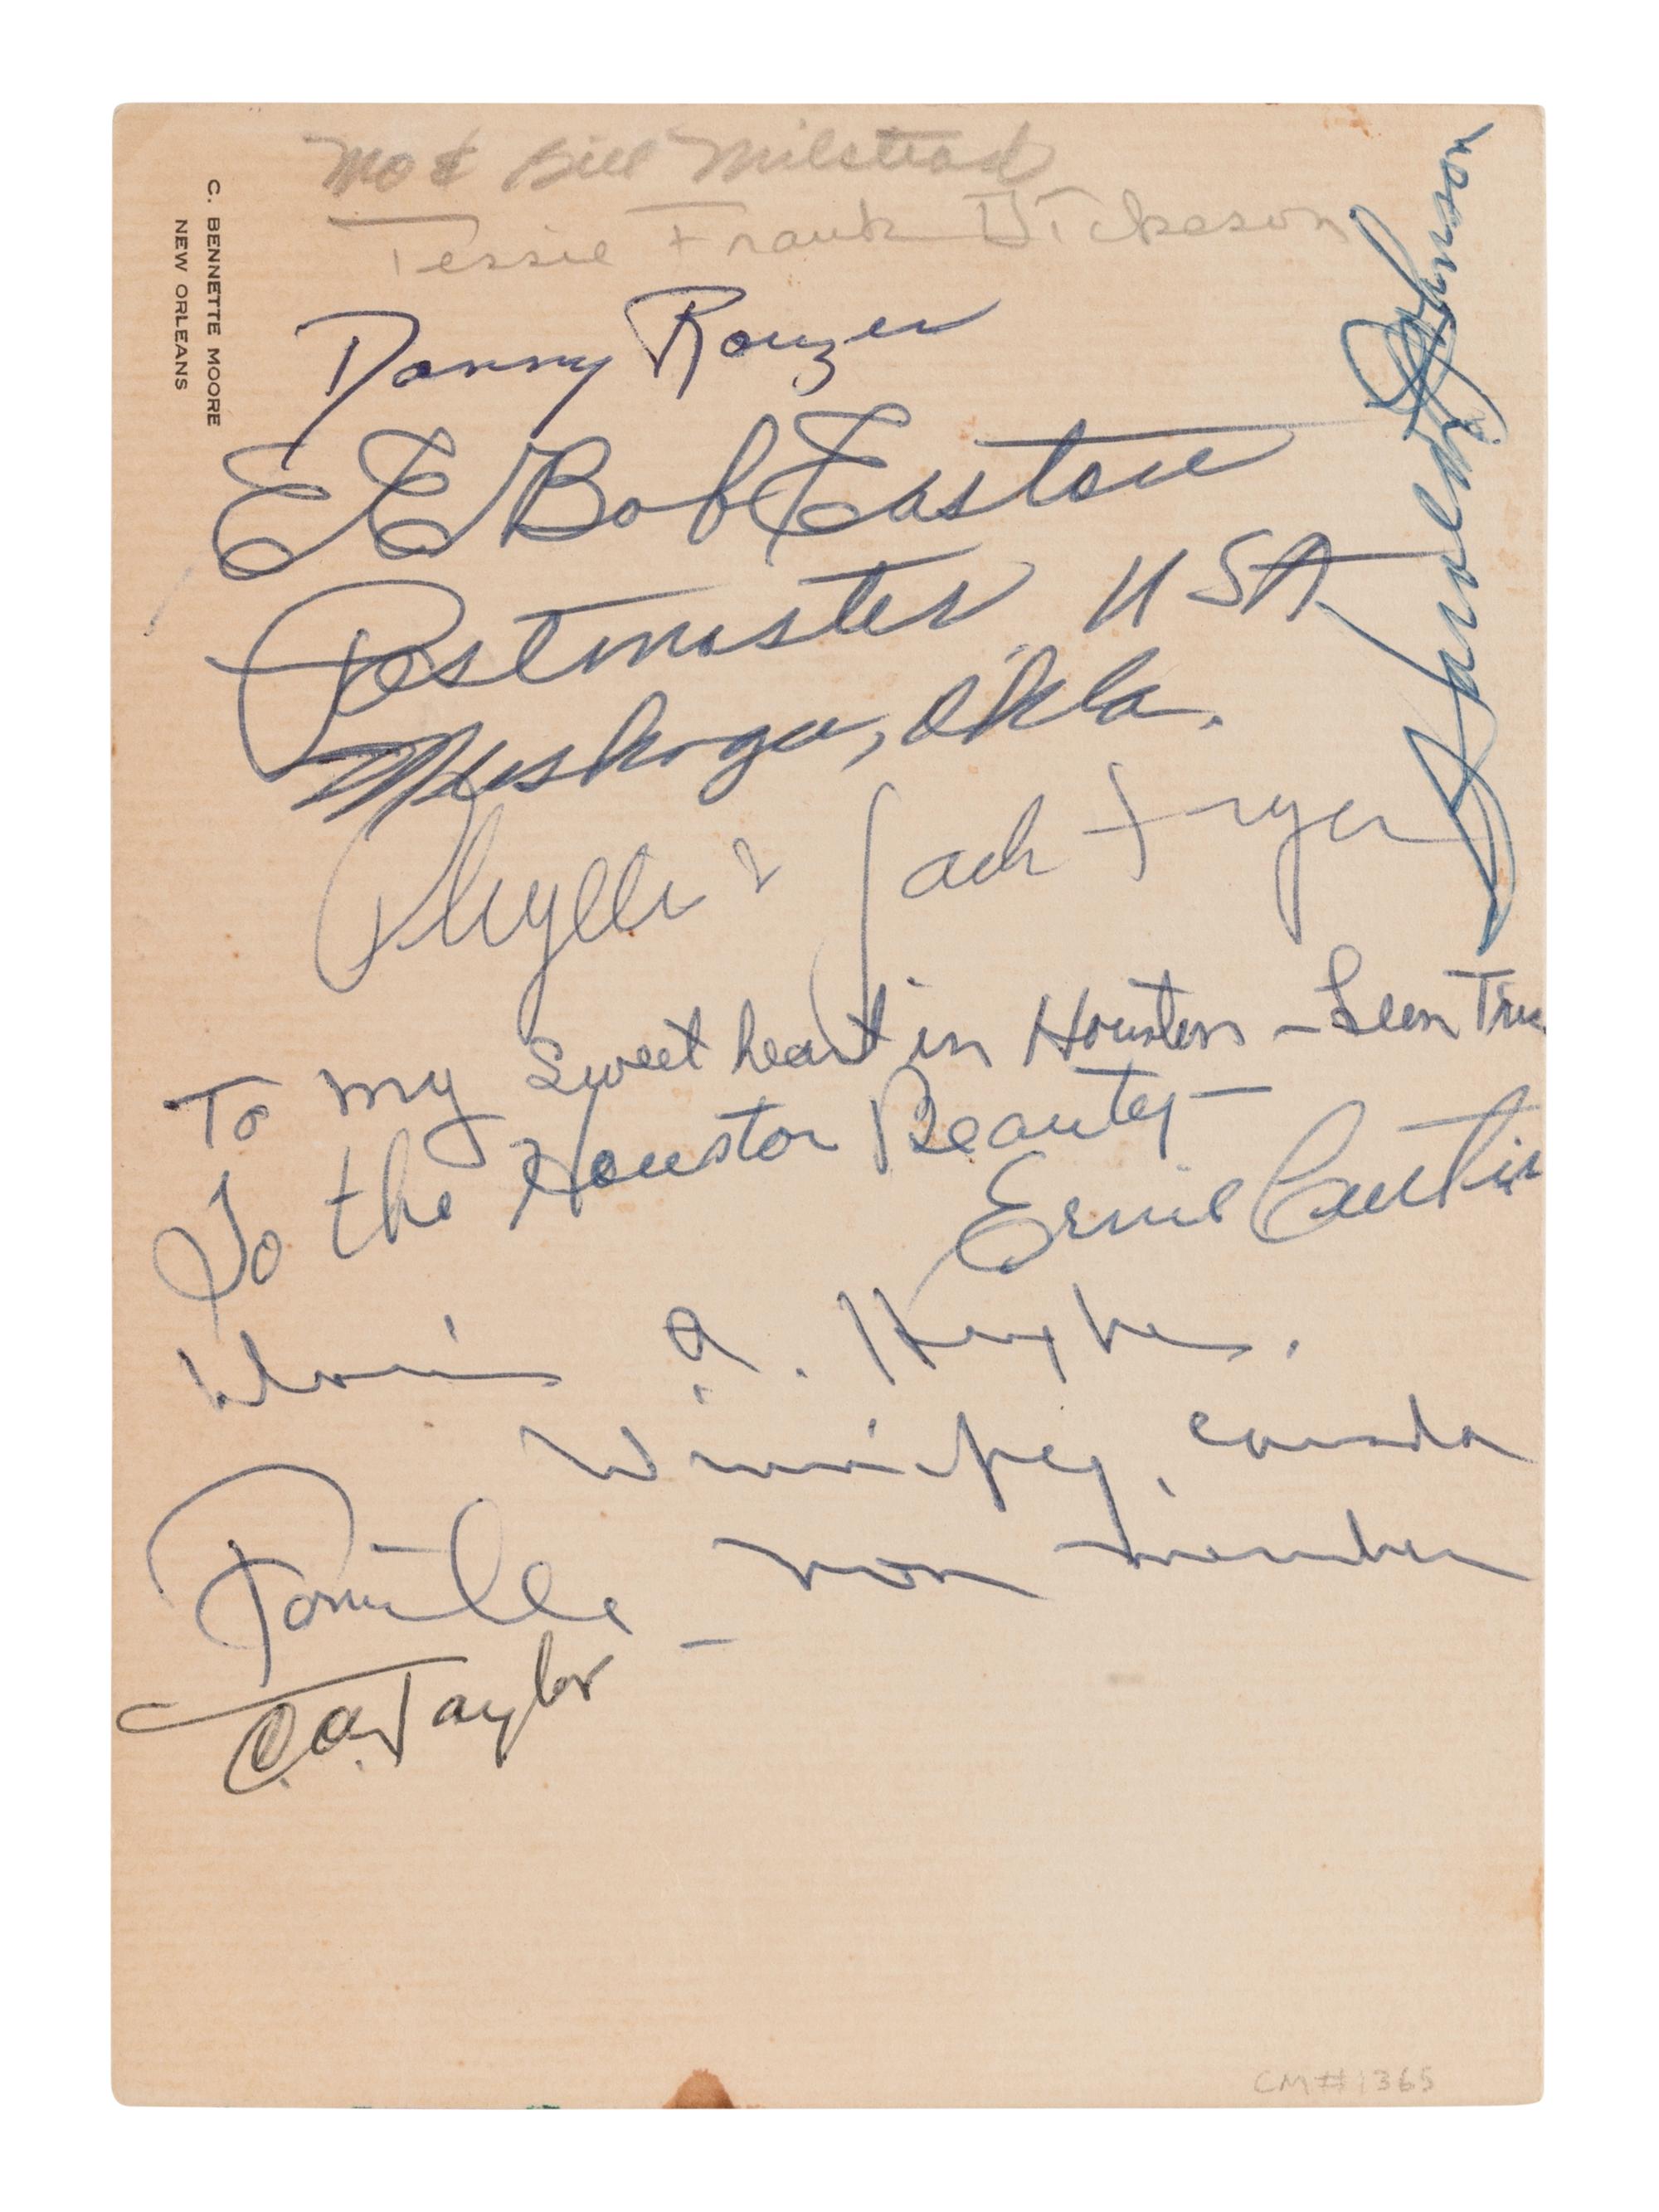 C. BENNETTE MOORE
NEW ORLEANS
Mo & Bill Milstead
Tessie Frank Dickeson
Danny Rouzer
EE Bob Easton
Postmaster USA
Muskogee, Okla.
Phyllis & Jack Fryer
Harold Johnson
To my Sweet heart in Houston –
To the Houston Beauty –
Ernie Curtis
A. Hughes.
Winnipeg, Canada
– non member
C.A. Taylor
CM#1365